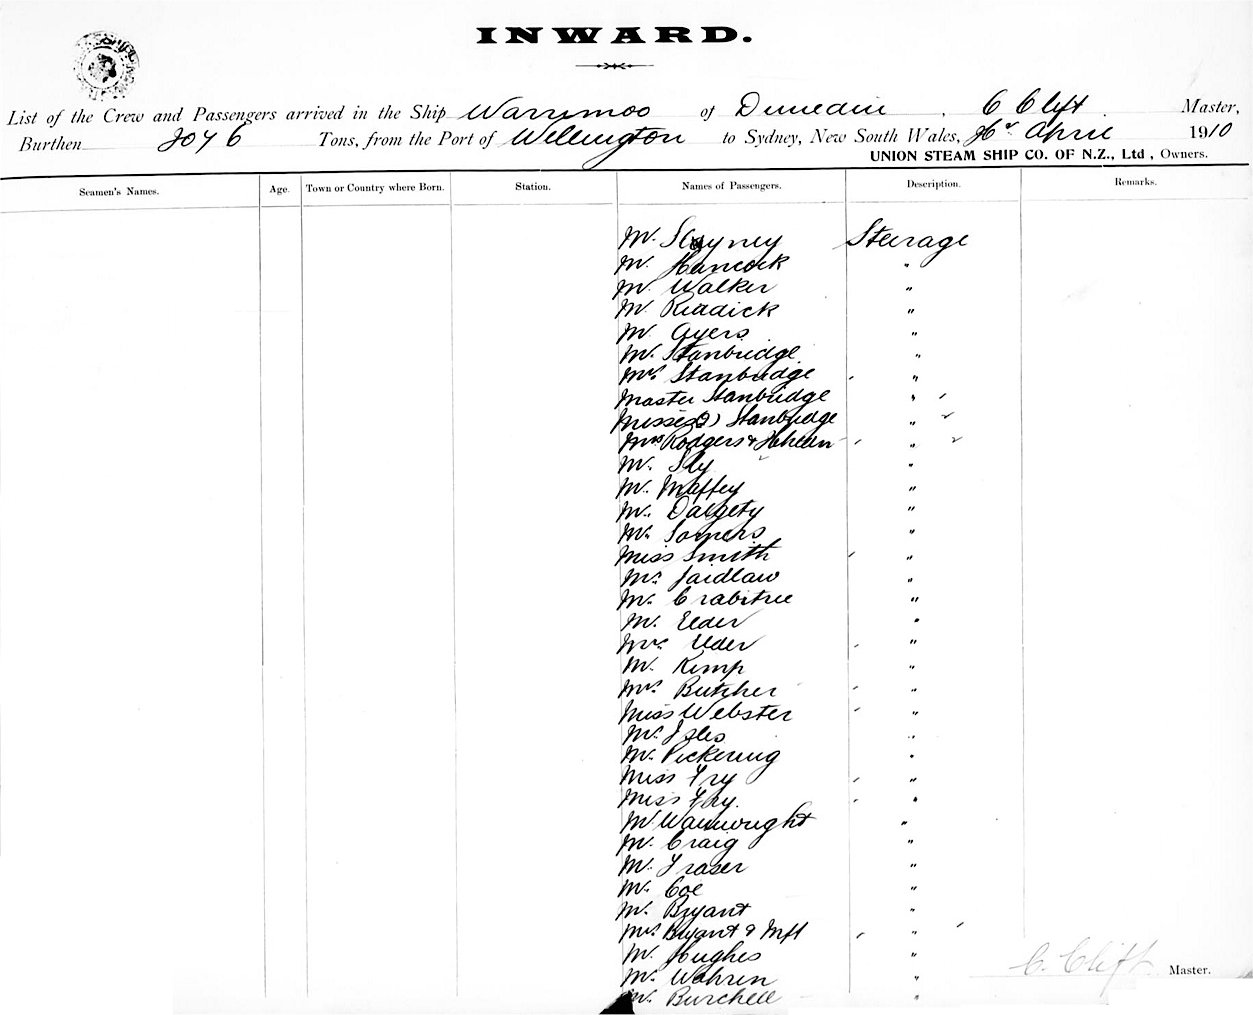 INWARD.
List of the Crew and Passengers arrived in the Ship Warrimoo of Dunedin, C Clift Master,
Burthen 2076 Tons, from the Port of Wellington to Sydney, New South Wales, April 1910
UNION STEAM SHIP CO. OF N.Z., Ltd, Owners.
Seamen's Names. Age. Town or Country where Born. Station. Names of Passengers. Description. Remarks.
Mr. Steerage
Mr. Hancock "
Mr. Walker "
Mr. Riddick "
Mr. Ayers "
Mr. Stanbridge "
Mrs. Stanbridge "
Master Stanbridge "
Misses (2) Stanbridge "
Mrs Rodgers & "
Mr. Sly "
Mr. Maffey "
Mr. Dalgety "
Mr. Somers "
Miss Smith "
Mr. Jaidlaw "
Mr. Crabtree "
Mr. Elder "
Mrs. Elder "
Mr. Kemp "
Mrs. Butcher "
Miss Webster "
Mr. "
Mr. Pickering "
Miss Fry "
Miss Fry. "
Mr Wainwright "
Mr. Craig "
Mr. Fraser "
Mr. Coe "
Mr. Bryant "
Mrs Bryant & Inft "
Mr. Hughes "
Mr. Wahren "
Mr. Burchell "
C. Clift Master.